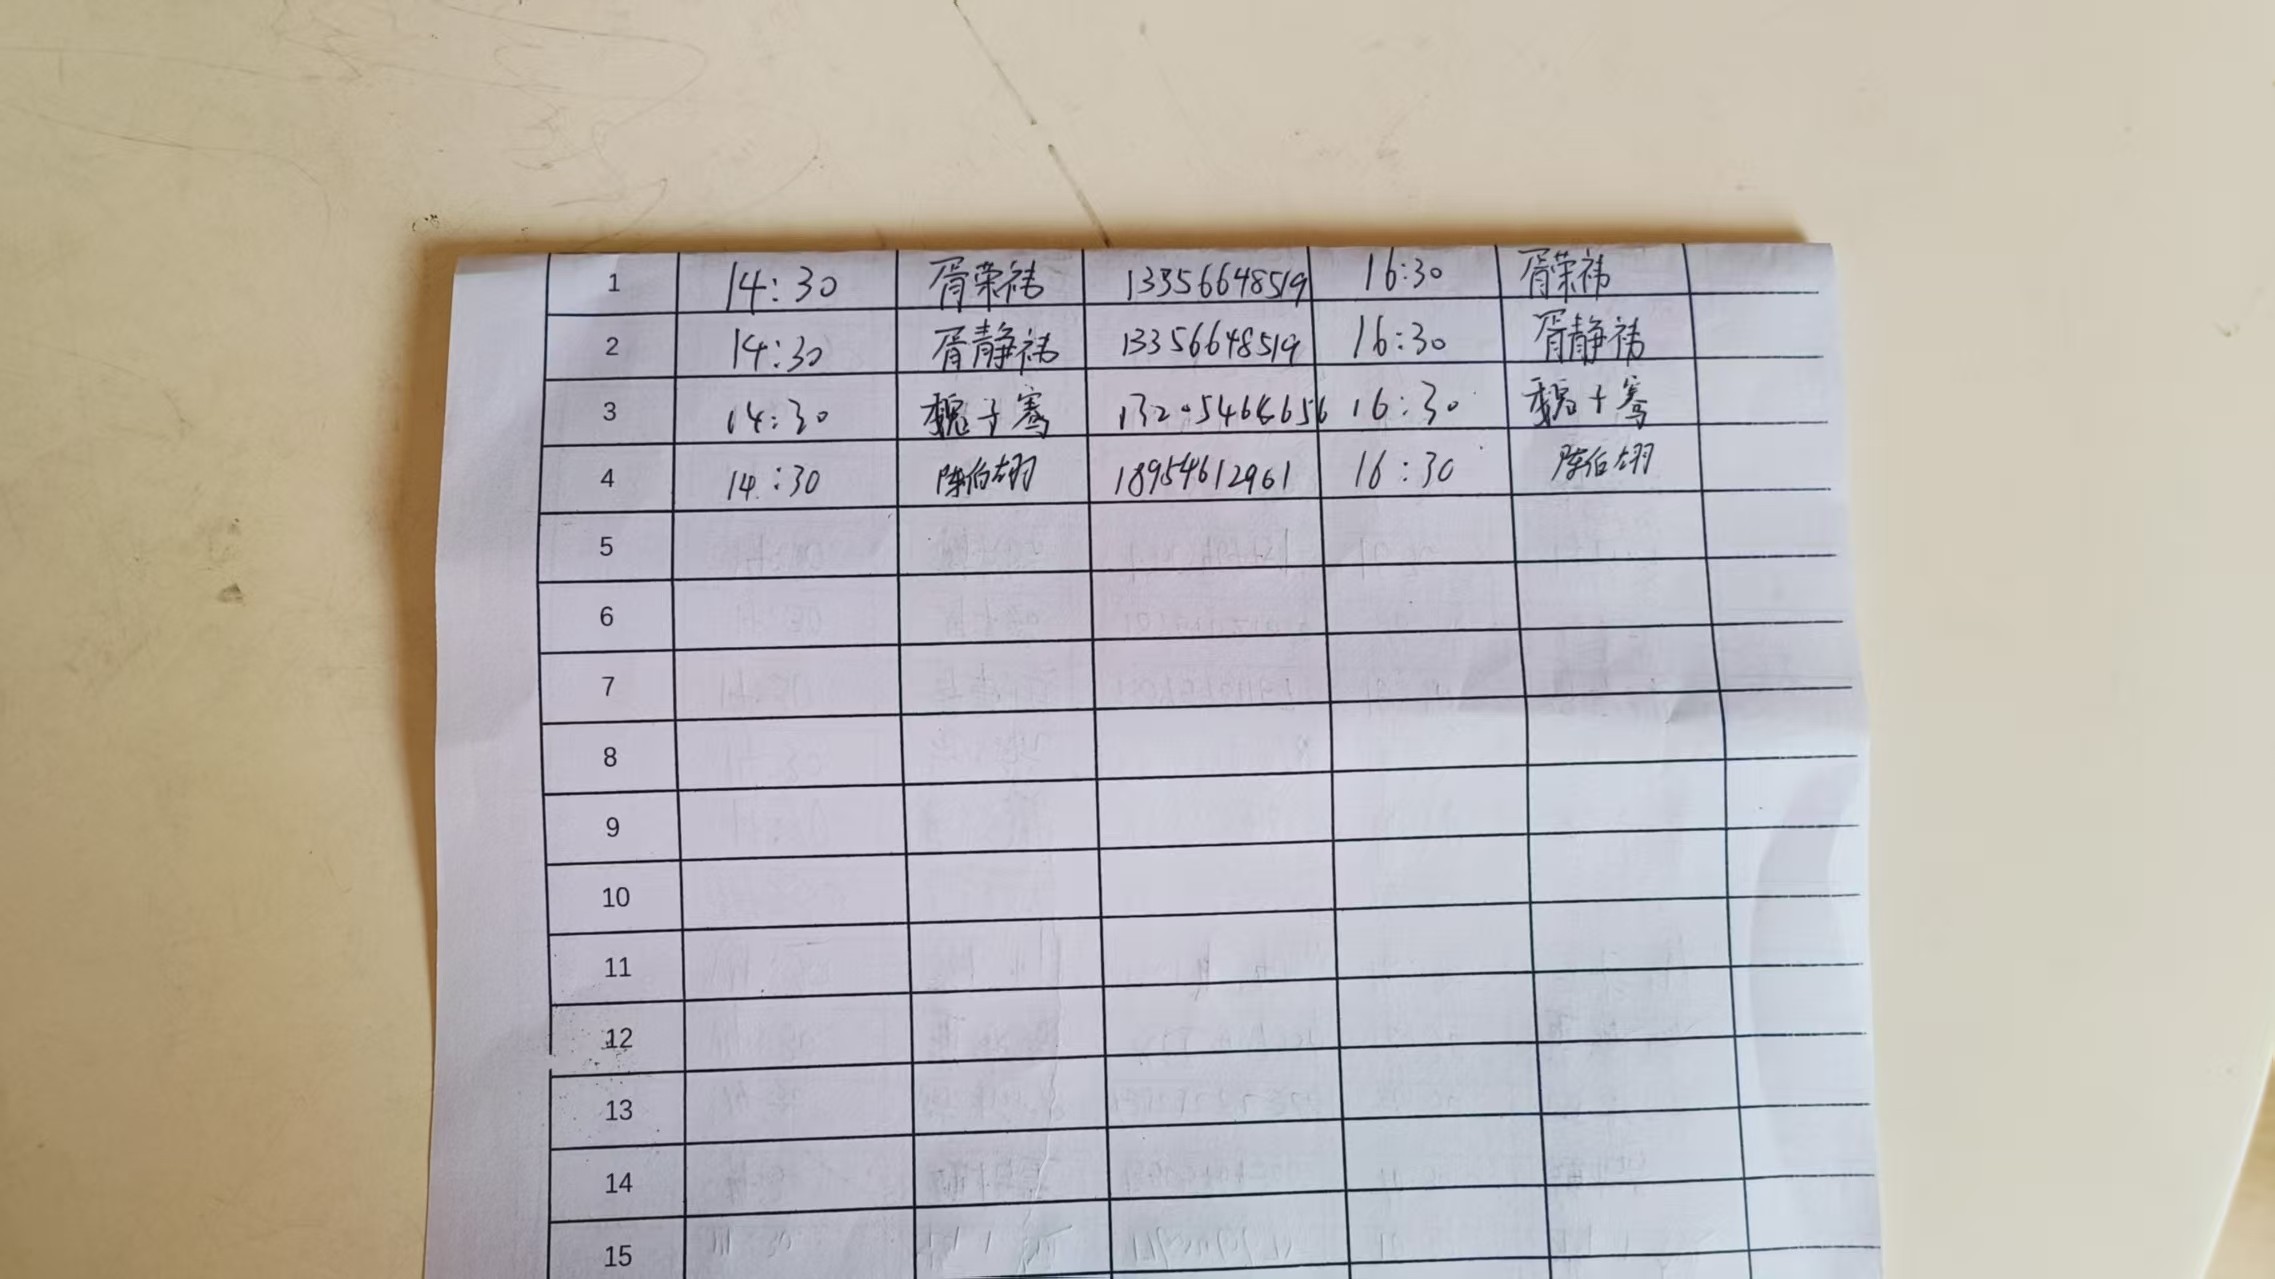 1 14:30 胥荣祎 13356648519 16:30 胥荣祎
2 14:30 胥静祎 13356648519 16:30 胥静祎
3 14:30 魏子骞 13205466656 16:30 魏子骞
4 14:30 陈伯翃 18954612961 16:30 陈伯翃
5
6
7
8
9
10
11
12
13
14
15